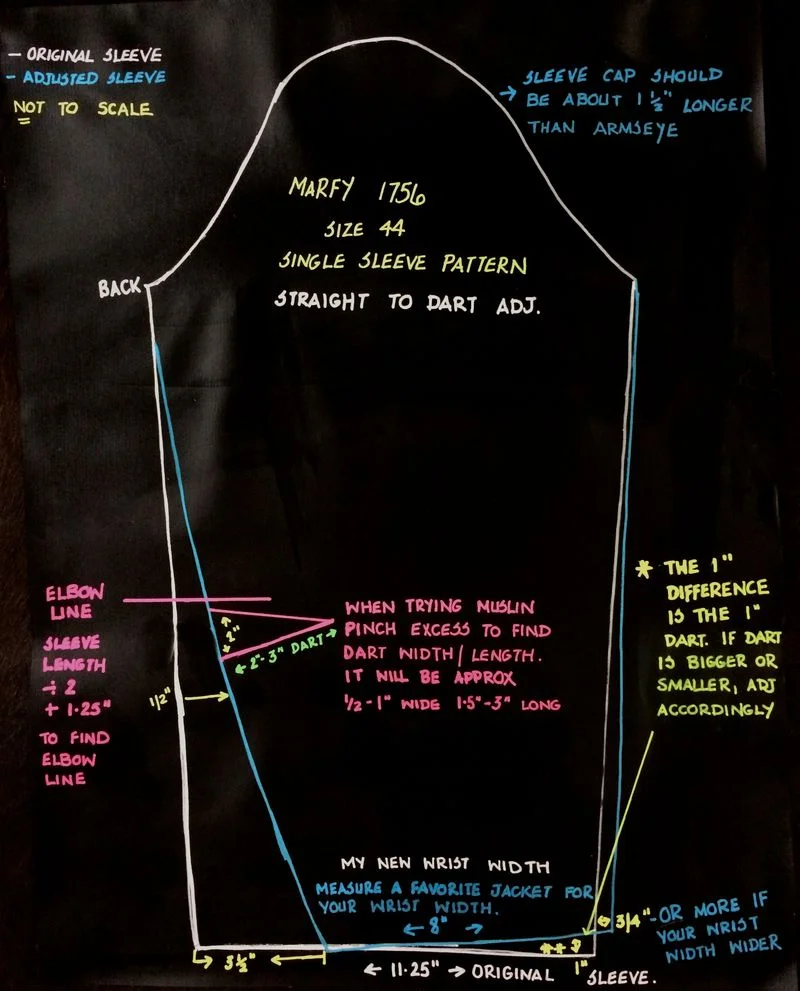 - ORIGINAL SLEEVE
- ADJUSTED SLEEVE
NOT TO SCALE
→ SLEEVE CAP SHOULD
BE ABOUT 1 1/2" LONGER
THAN ARMSEYE
MARFY 1756
SIZE 44
SINGLE SLEEVE PATTERN
STRAIGHT TO DART ADJ.
BACK
ELBOW
LINE
SLEEVE
LENGTH
÷ 2
+ 1.25"
TO FIND
ELBOW
LINE
1"
← 2"-3" DART →
1/2"
WHEN TRYING MUSLIN
PINCH EXCESS TO FIND
DART WIDTH/LENGTH.
IT WILL BE APPROX
1/2-1" WIDE 1.5"-3" LONG
* THE 1"
DIFFERENCE
IS THE 1"
DART. IF DART
IS BIGGER OR
SMALLER, ADJ
ACCORDINGLY
MY NEW WRIST WIDTH
MEASURE A FAVORITE JACKET FOR
YOUR WRIST WIDTH.
← 8" →
3/4" - OR MORE IF
YOUR WRIST
WIDTH WIDER
**
3 1/2"
← 11.25" → ORIGINAL SLEEVE.
1"